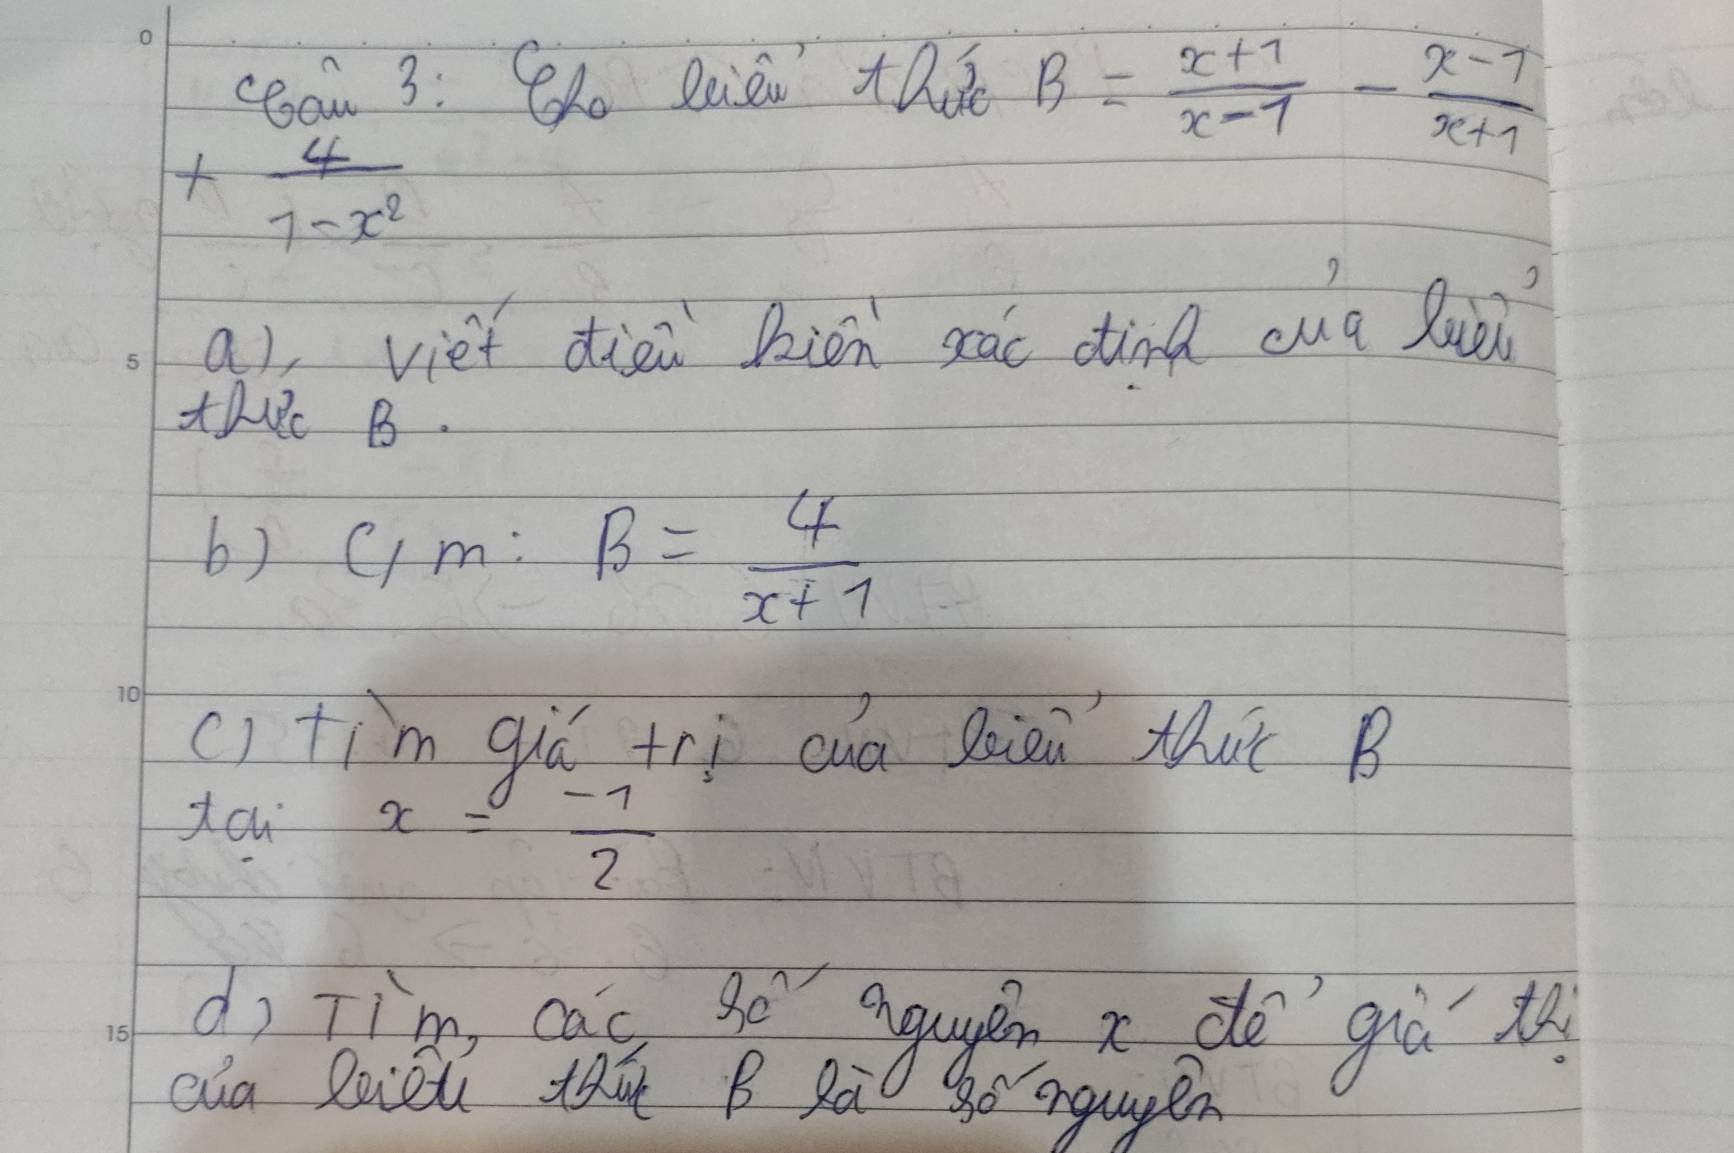 0
Câu 3: Cho biểu thức B = \frac{x+1}{x-1} - \frac{x-1}{x+1}
+ \frac{4}{1-x^2}
5
a), Viết điều kiện xác định của biểu
thức B.
b) C/m: B = \frac{4}{x+1}
10
c) Tìm giá trị của biểu thức B
tại x = \frac{-1}{2}
15
d) Tìm, các số nguyên x để giá thị
của biểu thức B là số nguyên